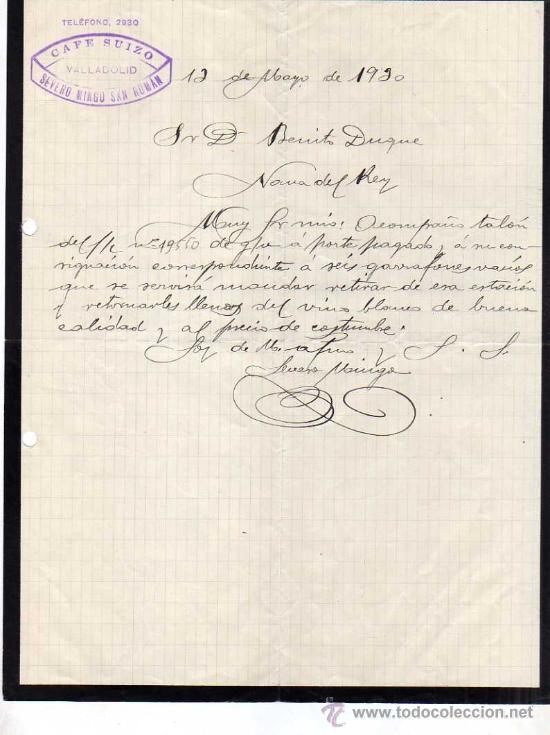 TELÉFONO, 2930
CAFE SUIZO
VALLADOLID
SEVERO MINGO SAN ROMÁN
12 de Mayo de 1930
Sr D. Benito Duque
Nava del Rey
Muy Sr mio: Acompaño talón
del f/c nº 19550 de g/v á porte pagado y á su con-
signación correspondiente á seis garrafones vacios
que se servirá mandar retirar de esa estación
y retornarles llenos del vino blanco de buena
calidad y al precio de costumbre.
Soy de V. afmo y S. S.
Severo Mingo
www.todocoleccion.net